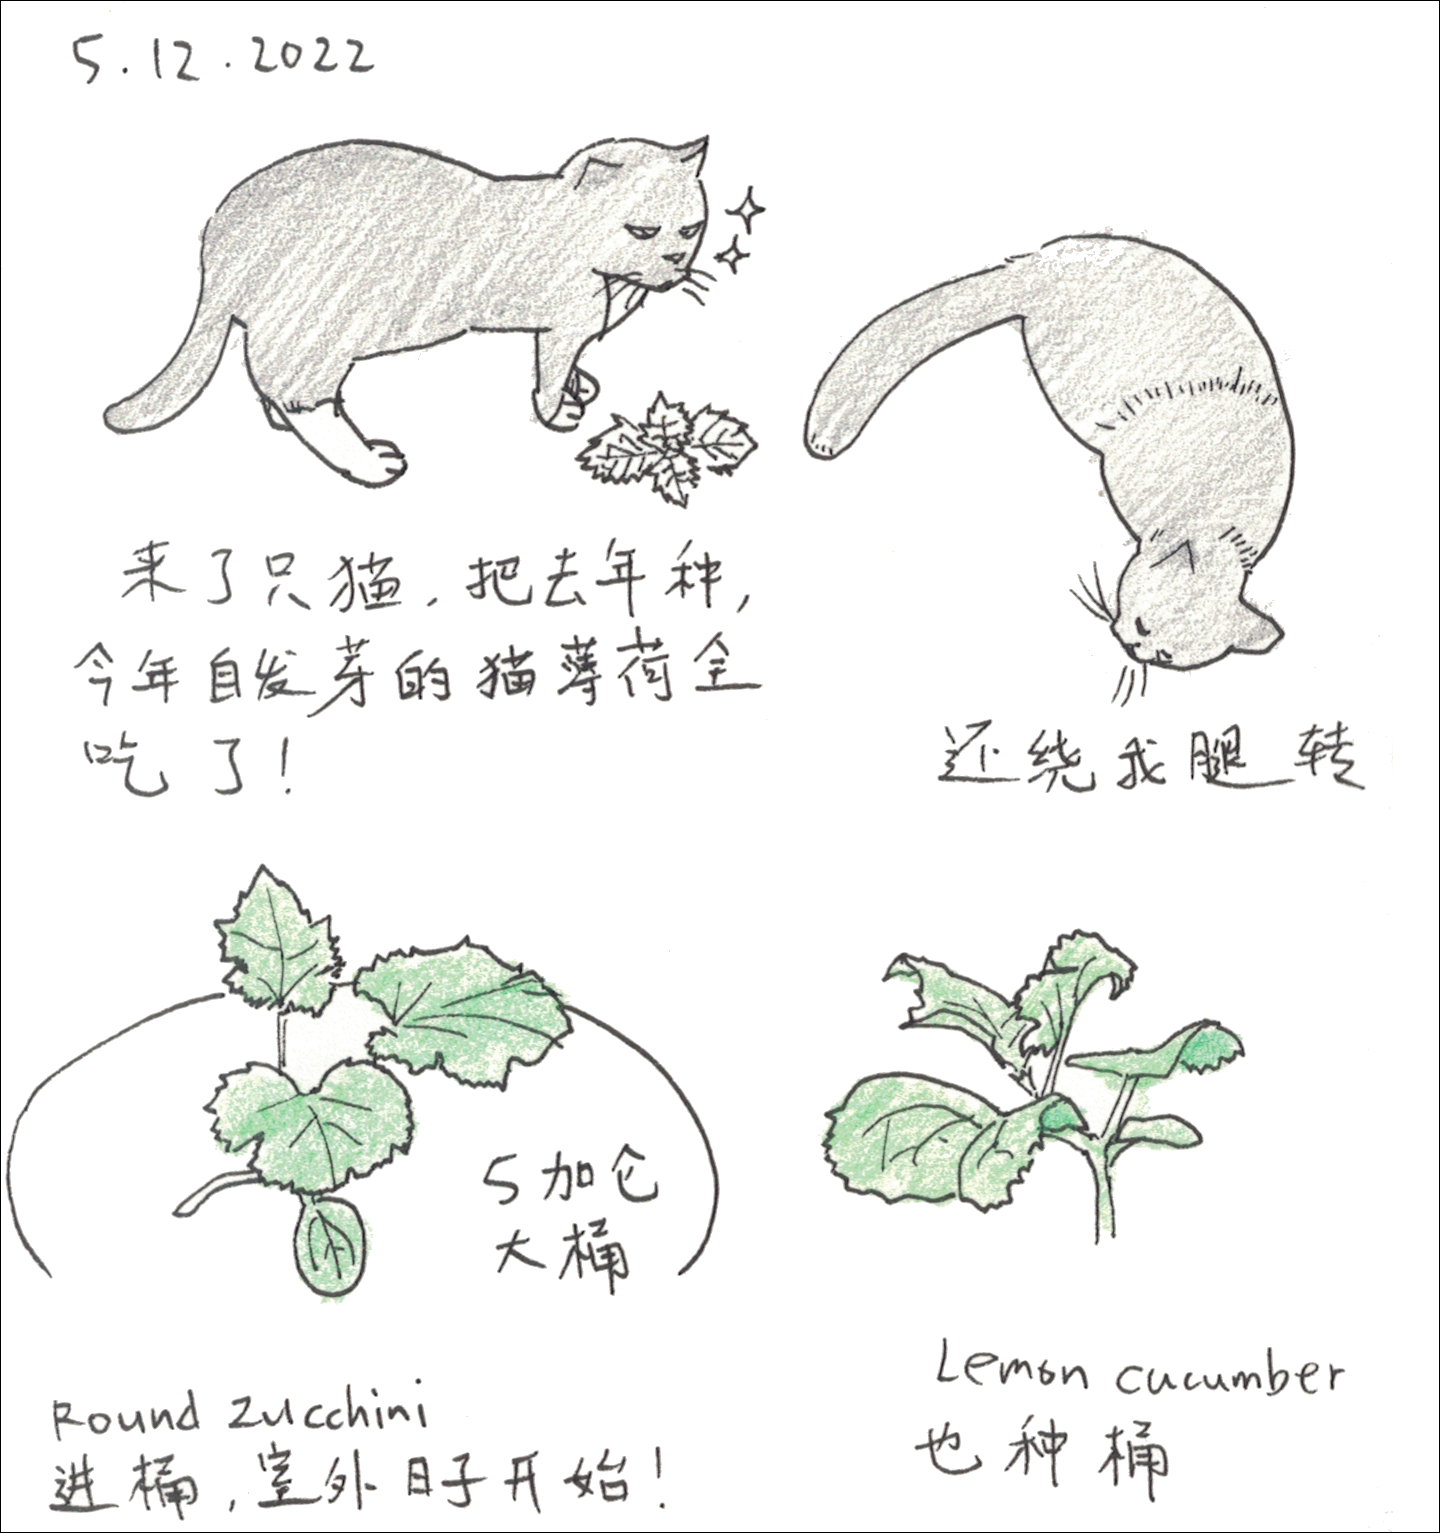 5.12.2022
来了只猫，把去年种，
今年自发芽的猫薄荷全
吃了！
还绕我腿转
5加仑
大桶
Round zucchini
进桶，室外日子开始！
Lemon cucumber
也种桶